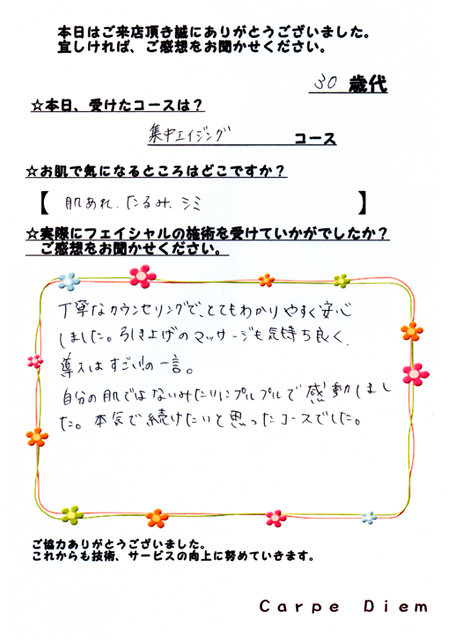 本日はご来店頂き誠にありがとうございました。
宜しければ、ご感想をお聞かせください。
30 歳代
☆本日、受けたコースは？
集中エイジング コース
☆お肌で気になるところはどこですか？
【 肌あれ、たるみ、シミ 】
☆実際にフェイシャルの施術を受けていかがでしたか？
ご感想をお聞かせください。
丁寧なカウンセリングで、とてもわかりやすく安心
しました。引き上げのマッサージも気持ち良く、
導入はすごい!の一言。
自分の肌ではないみたいにプルプルで感動しまし
た。本気で続けたいと思ったコースでした。
ご協力ありがとうございました。
これからも技術、サービスの向上に努めていきます。
Carpe Diem